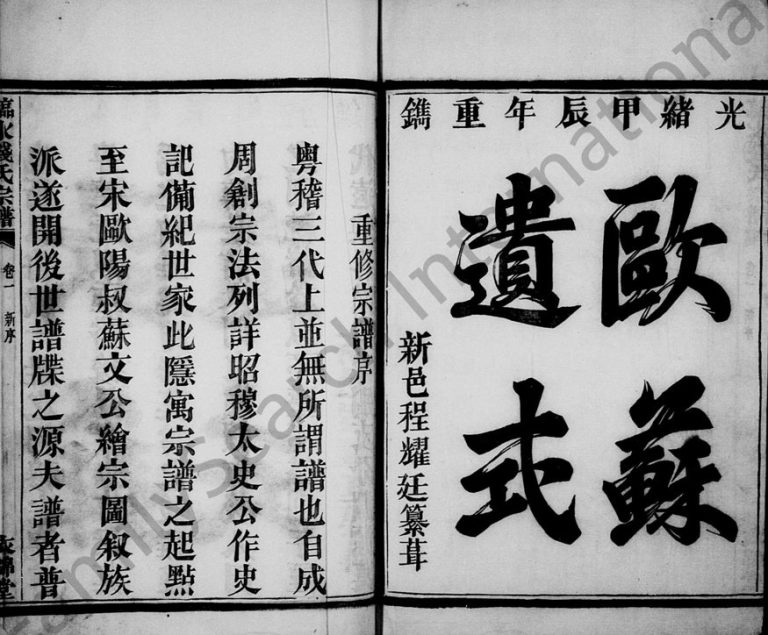 光緒甲辰年重鐫
歐蘇
遺式
新邑程耀廷纂葺
重修宗譜序
粵稽三代上並無所謂譜也自成
周創宗法列詳昭穆太史公作史
記備紀世家此隱寓宗譜之起點
至宋歐陽叔蘇文公繪宗圖叙族
派遂開後世譜牒之源夫譜者普
臨水錢氏宗譜
卷一
新序
錦堂
FamilySearch International